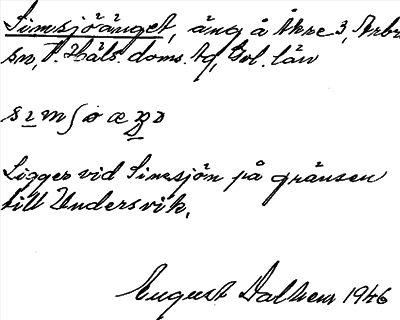 Simsjöänget, äng å Åkre 3, Arbrå
sn, N. Häls. doms. hd, Gvl. län
sɪmʃøæŋə
Ligger vid Simsjön på gränsen
till Undersvik.
August Dalhem 1946